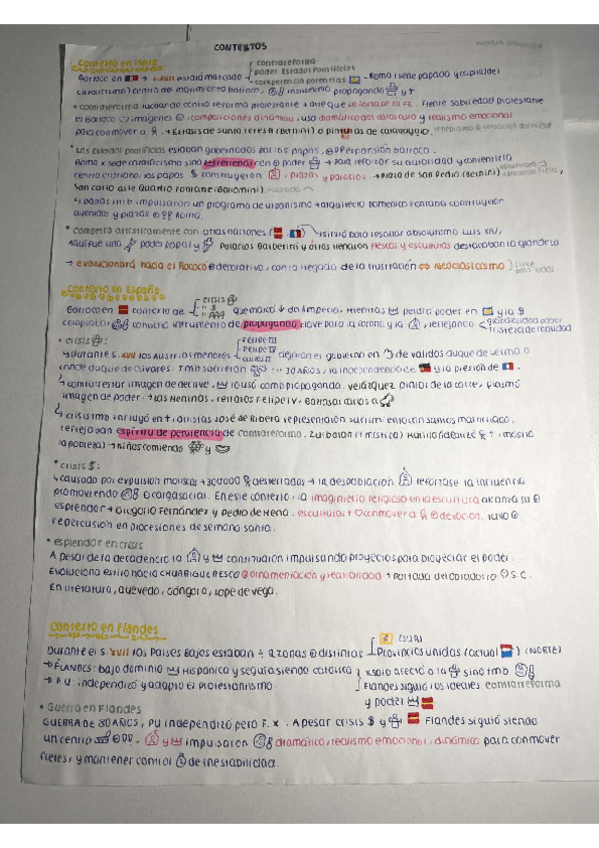 CONTEXTOS
Contexto en Italia
contrarreforma
poder Estados Pontificios
Barroco en → s. XVII estará marcado competencia potencias. Roma (sede papado y capital del
catolicismo) centro del movimiento barroco, instrumento propaganda y
contrarreforma: luchando contra reforma protestante → arte que refuerce la fe. Frente sobriedad protestante
el Barroco imágenes composiciones dinámicas, uso dramático del claroscuro y realismo emocional
para conmover a. → Éxtasis de Santa Teresa (Bernini) o pinturas de Caravaggio.
Los Estados pontificios estaban gobernados por los papas, expansión barroco.
Roma x sede catolicismo sino terrenal con poder → para reforzar su autoridad y convertirla
centro cristiano, los papas $ construyeron, plazas y palacios → Plaza de San Pedro (Bernini)
San Carlo alle Quattro Fontane (Borromini)
papas tmb impulsaron un programa de urbanismo → arquitecto Domenico Fontana construyó
avenidas y plazas Roma.
competía artísticamente con otras naciones sirvió para resaltar absolutismo Luis XIV,
Aquí fue una poder papal y Palacios Barberini y otros llenaron frescos y esculturas destacaban la grandeza
→ evolucionará hacia el Rococó decorativo, con la llegada de la Ilustración ⇔ Neoclasicismo
Contexto en España
crisis
Barroco en contexto de $ que marcó ↓ del imperio. Mientras perdía poder en y la
convirtió instrumento de propaganda clave para la corona y la, reflejando
crisis:
Felipe III
Felipe IV
Carlos II
Durante s. XVII los Austrias menores dejaron el gobierno en de validos duque de Lerma o
conde duque de Olivares. Tmb sucedieron 30 años, la independencia de y la presión de.
contrarrestar imagen de declive, lo usó como propaganda. Velázquez pintor de la corte, plasmó
imagen de poder. → Las Meninas, retratos Felipe IV, Baltasar Carlos a
crisis tmb influyó en, artistas José de Ribera representación sufrim. emoción santos martirizado.
reflejaban espíritu de penitencia de contrarreforma. Zurbarán (mística) Murillo (idealizó, mostró
la pobreza) → Niños comiendo y
crisis $:
causado por expulsión moriscos → 300000 desterrados → la despoblación reforzase la influencia
promoviendo carga social. En este contexto, la imaginería religiosa en la escultura alcanza su
esplendor → Gregorio Fernández y Pedro de Mena. esculturas → conmover a devoción. tuvo
repercusión en procesiones de semana santa.
esplendor en crisis
A pesar de la decadencia la y continuaron impulsando proyectos para proyectar el poder.
Evoluciona estilo hacia CHURRIGUERESCO ornamentación y teatralidad → Portada del Obradoiro S.C.
En literatura, Quevedo, Góngora, Lope de Vega.
Contexto en Flandes
(SUR)
Durante el s. XVII los Países Bajos estaban ÷ 2 zonas distintas Provincias unidas (actual) (NORTE)
→ FLANDES: bajo dominio Hispánica y seguía siendo católica
→ P.U: independizó y adoptó el protestanismo.
x solo afectó a la sino tmb
Flandes siguió los ideales contrarreforma
y poder
Guerra en Flandes
GUERRA DE 80 AÑOS, PU independizó pero F. X. A pesar crisis $ y Flandes siguió siendo
un centro. y impulsaron dramático, realismo emocional, dinámico para conmover
fieles, y mantener control de inestabilidad.